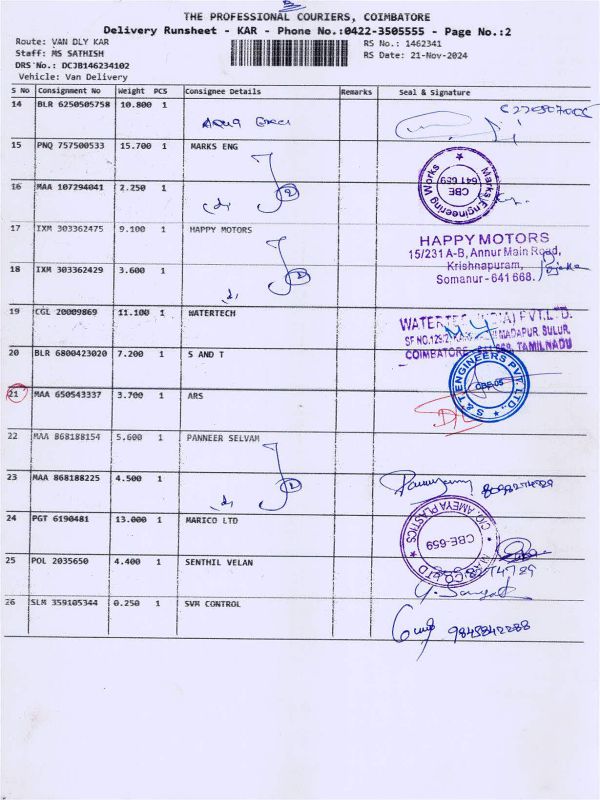 THE PROFESSIONAL COURIERS, COIMBATORE
Delivery Runsheet - KAR - Phone No.:0422-3505555 - Page No.:2
Route: VAN DLY KAR
RS No.: 1462341
Staff: MS SATHISH
RS Date: 21-Nov-2024
DRS No.: DCJB146234102
Vehicle: Van Delivery
S No Consignment No Weight PCS Consignee Details Remarks Seal & Signature
14 BLR 6250505758 10.800 1
15 PNQ 757500533 15.700 1 MARKS ENG
Marks Engineering Works
CBE
641 659
16 MAA 107294041 2.250 1
17 IXM 303362475 9.100 1 HAPPY MOTORS
HAPPY MOTORS
15/231 A-B, Annur Main Road,
Krishnapuram,
Somanur - 641 668.
18 IXM 303362429 3.600 1
19 CGL 20009869 11.100 1 WATERTECH
PVT.LTD.
SF NO.129/2 MADAPUR, SULUR,
COIMBATORE TAMILNADU
20 BLR 6800423020 7.200 1 S AND T
S & T ENGINEERS PVT. LTD.,
CBE-05
21 MAA 650543337 3.700 1 ARS
22 MAA 868188154 5.600 1 PANNEER SELVAM
23 MAA 868188225 4.500 1
24 PGT 6190481 13.000 1 MARICO LTD
C/O. AMEYA PLASTICS
CBE-659
MARICO LTD
25 POL 2035650 4.400 1 SENTHIL VELAN
26 SLM 359105344 0.250 1 SVM CONTROL
9845842288